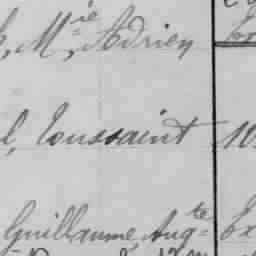 Mie, Adrien
l, Toussaint 10
Guillaume, Augte Ex